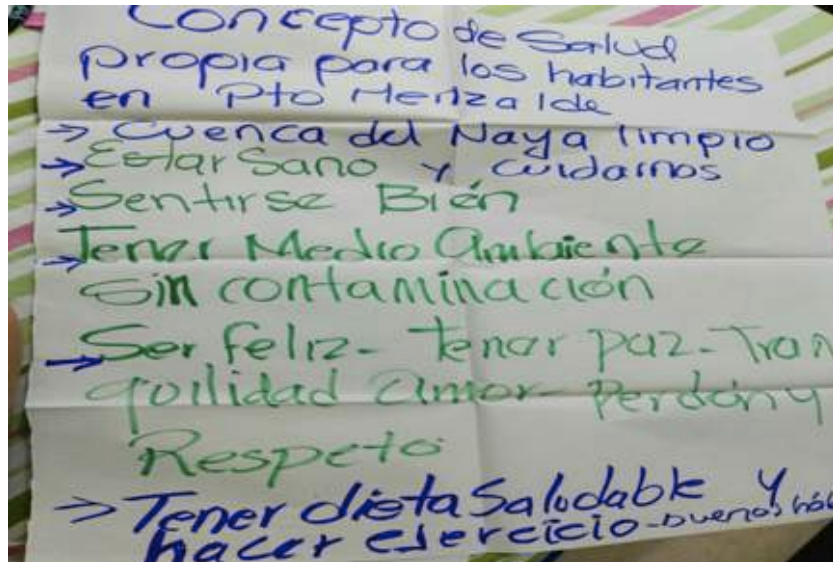 Concepto de Salud
propia para los habitantes
en Pto Merizalde
→ Cuenca del Naya limpio
→ Estar Sano y cuidarnos
→ Sentirse Bién
→ Tener Medio Ambiente
Sin contaminación
→ Ser feliz - tener paz - Tran
quilidad Amor - Perdón y
Respeto
→ Tener dieta Saludable y
hacer ejercicio - buenos háb